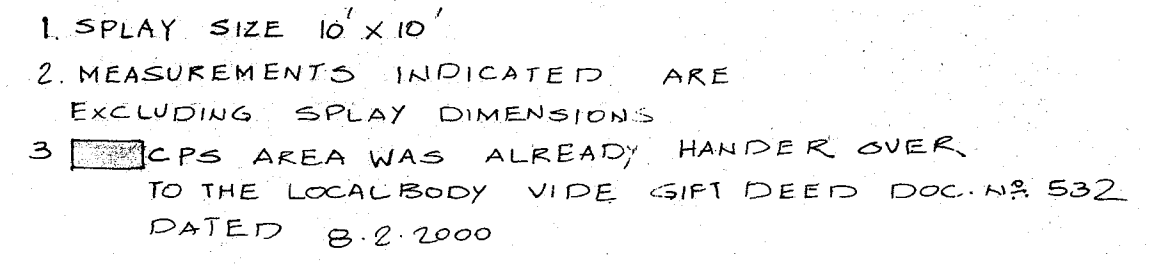 1. SPLAY SIZE 10' X 10'
2. MEASUREMENTS INDICATED ARE
EXCLUDING SPLAY DIMENSIONS
3 CPS AREA WAS ALREADY HANDER OVER
TO THE LOCAL BODY VIDE GIFT DEED DOC. Nº 532
DATED 8.2.2000